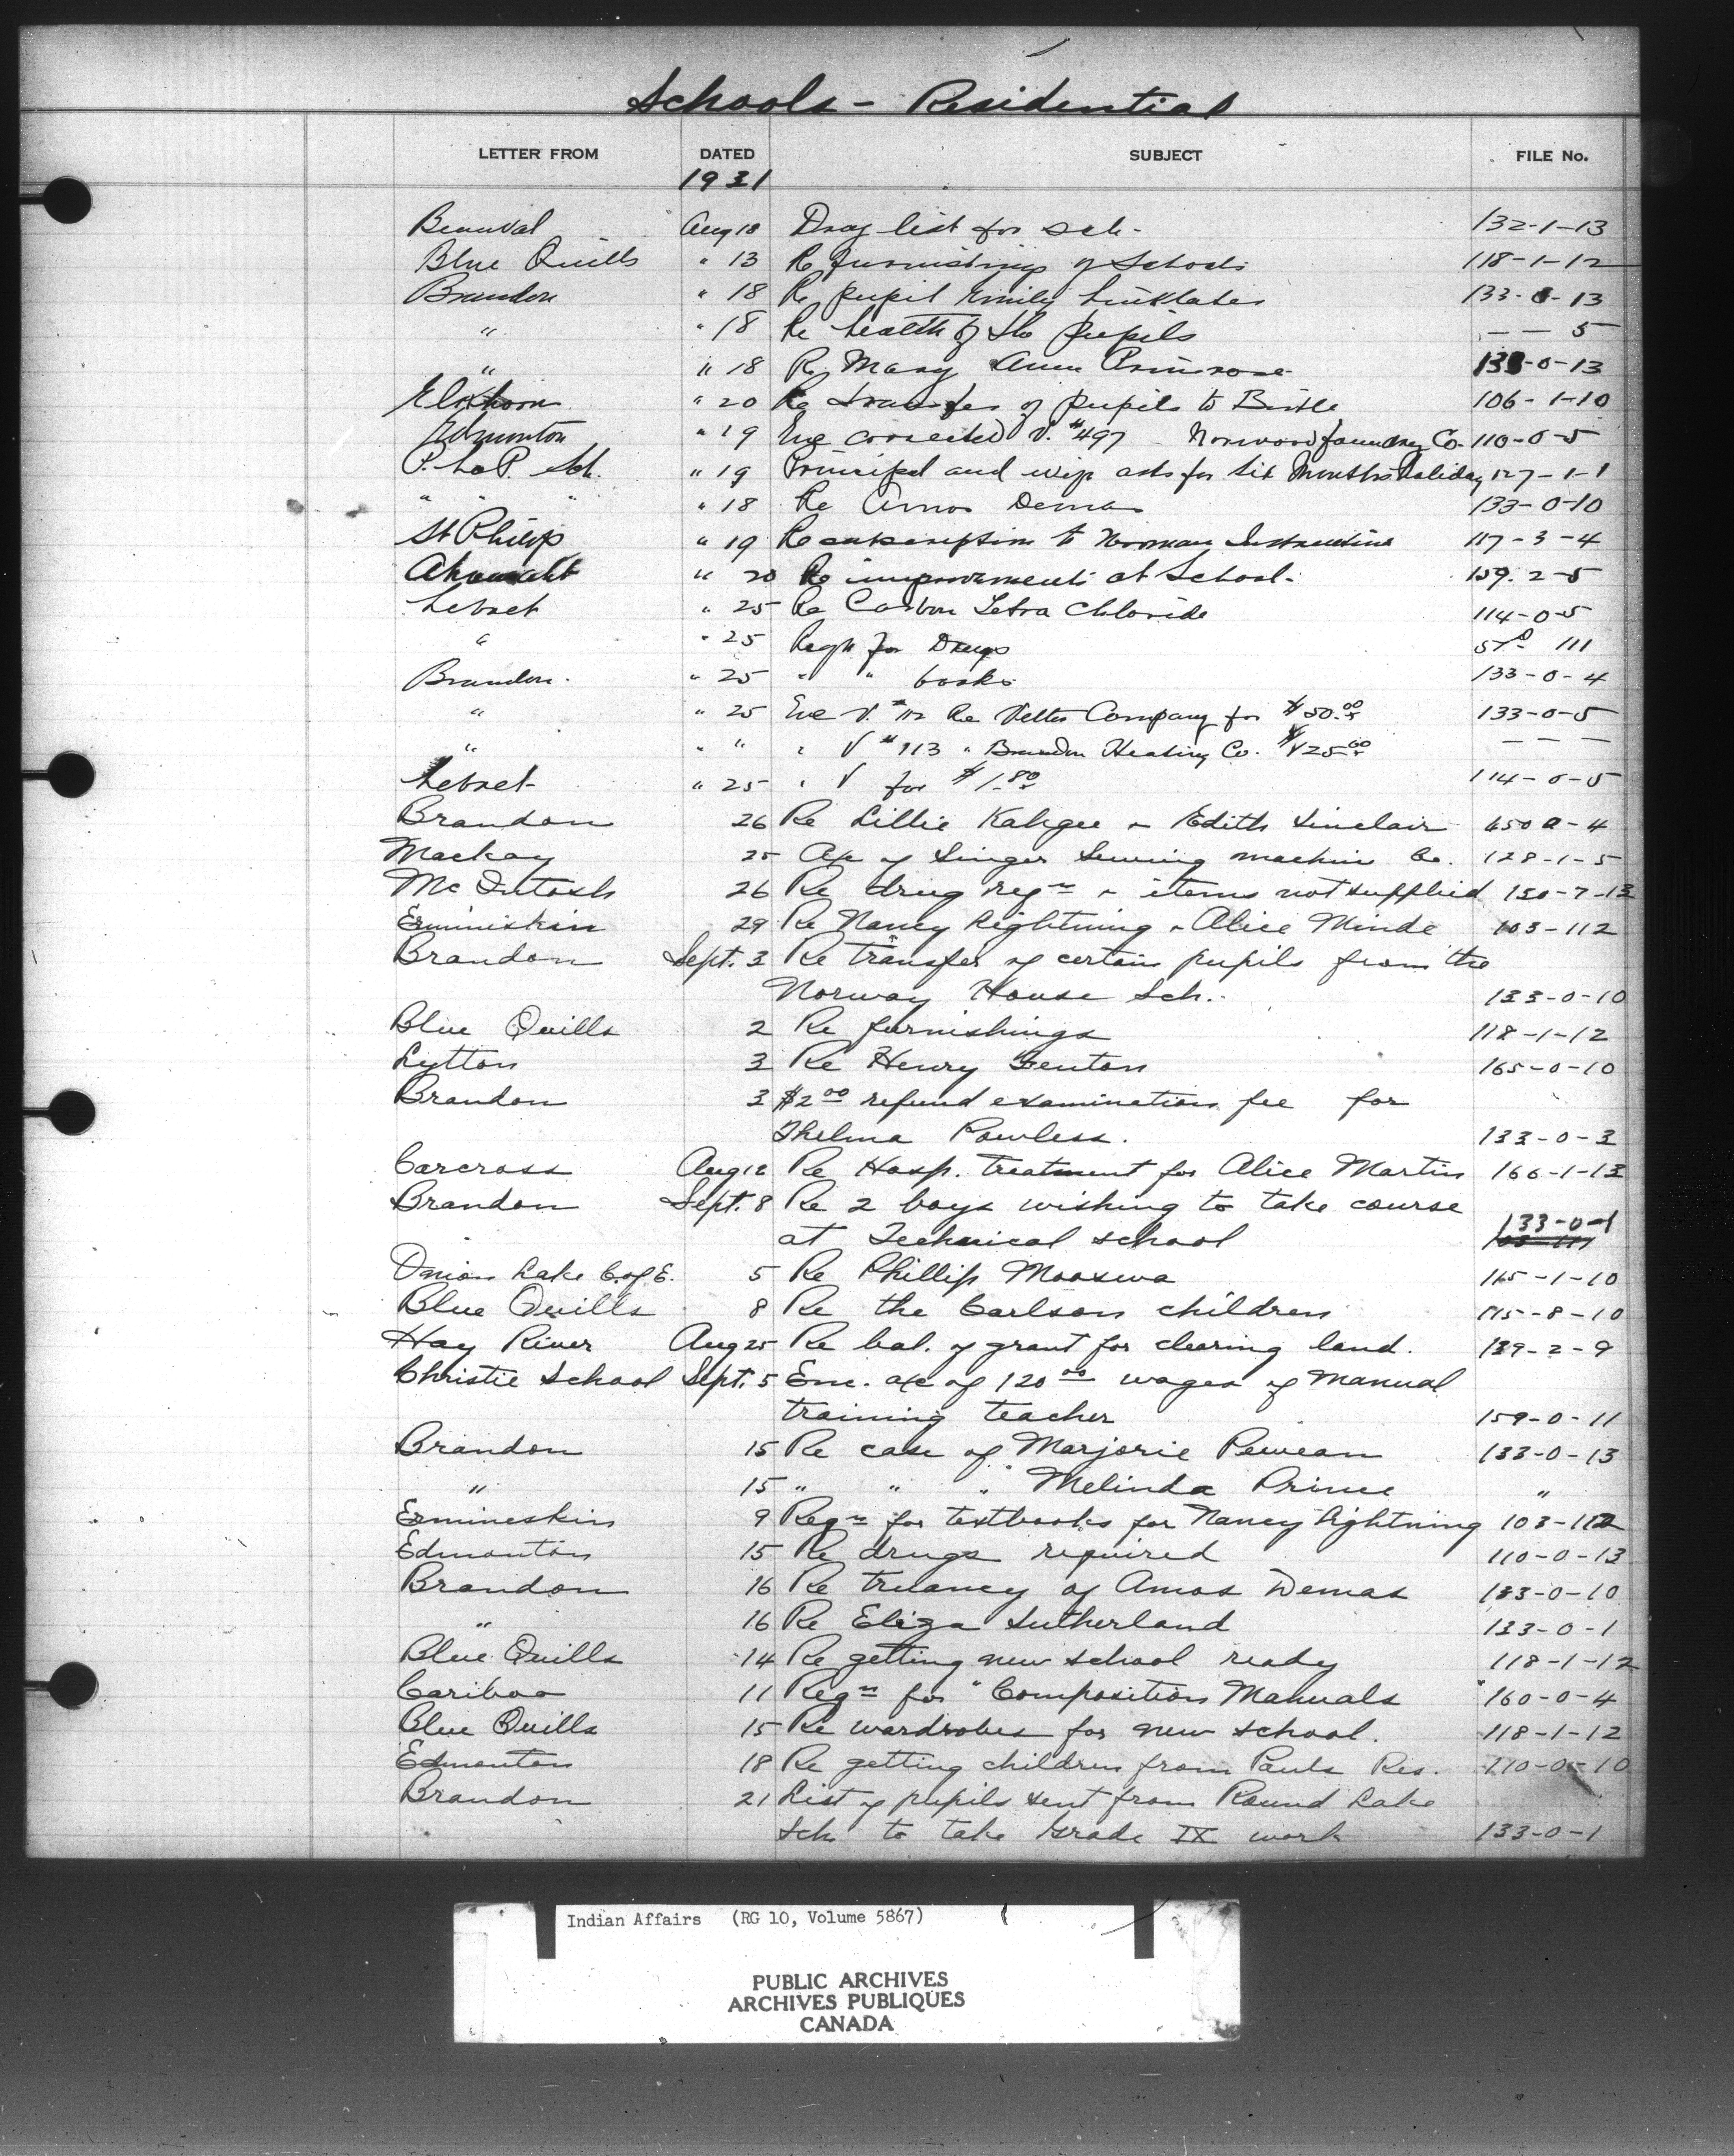 Schools - Residential
LETTER FROM DATED SUBJECT FILE No.
1931
Beauval Aug 18 Drug list for sch. 132-1-13
Blue Quills " 13 Re furnishings of Schools 118-1-12
Brandon " 18 Re pupil Emily Linklater 133-0-13
" " 18 Re health of the pupils — — 5
" " 18 Re Mary Ann Primrose 133-0-13
Elkhorn " 20 Re transfer of pupils to Birtle 106-1-10
Edmonton " 19 Enc corrected V. #497 Norwood foundry Co. 110-0-5
P. La P. Sch. " 19 Principal and wife asks for six months holiday 127-1-1
" " " " 18 Re Amos Demas 133-0-10
St Philip " 19 Re subscription to Norman 117-3-4
Ahousaht " 20 Re improvements at School. 159-2-5
Lebret " 25 Re Carbon Tetra Chloride 114-0-5
" " 25 Reqn for Drugs 111
Brandon. " 25 " " books 133-0-4
" " 25 Enc V. #112 Re Company for $50.00 133-0-5
" " " " V #113 " Brandon Heating Co. — — —
Lebret " 25 " V for $1.80 114-0-5
Brandon 26 Re Lillie Kahgee & Edith Sinclair 450a-4
Mackay 25 A/c of Singer Sewing machine Co. 128-1-5
Mc Intosh 26 Re drug reqn & items not supplied 150-7-13
Ermineskin 29 Re Nancy Lightning & Alice Minde 103-112
Brandon Sept. 3 Re transfer of certain pupils from the
Norway House Sch. 133-0-10
Blue Quills 2 Re furnishings 118-1-12
Lytton 3 Re Henry 165-0-10
Brandon 3 $2.00 refund examination fee for
Thelma Powless. 133-0-3
Carcross Aug 12 Re Hosp. treatment for Alice Martin 166-1-13
Brandon Sept. 8 Re 2 boys wishing to take course
133-0-1
at Technical school
Onion Lake C. of E. 5 Re Phillip Mooswa 115-1-10
Blue Quills 8 Re the Carlson children 115-8-10
Hay River Aug 25 Re bal. of grant for clearing land. 139-2-9
Christie School Sept. 5 Enc. a/c of 120.00 wages of Manual
training teacher 159-0-11
Brandon 15 Re case of Marjorie Pewean 133-0-13
" 15 " " " Melinda Prince "
Ermineskin 9 Reqn for textbooks for Nancy Lightning 103-112
Edmonton 15 Re drugs required 110-0-13
Brandon 16 Re truancy of Amos Demas 133-0-10
" 16 Re Eliza Sutherland 133-0-1
Blue Quills 14 Re getting new school ready 118-1-12
Cariboo 11 Reqn for "Composition Manuals" 160-0-4
Blue Quills 15 Re wardrobes for new school. 118-1-12
Edmonton 18 Re getting children from Pauls Res. 110-0-10
Brandon 21 List of pupils sent from Round Lake
Sch. to take Grade IX work 133-0-1
Indian Affairs (RG 10, Volume 5867)
PUBLIC ARCHIVES
ARCHIVES PUBLIQUES
CANADA